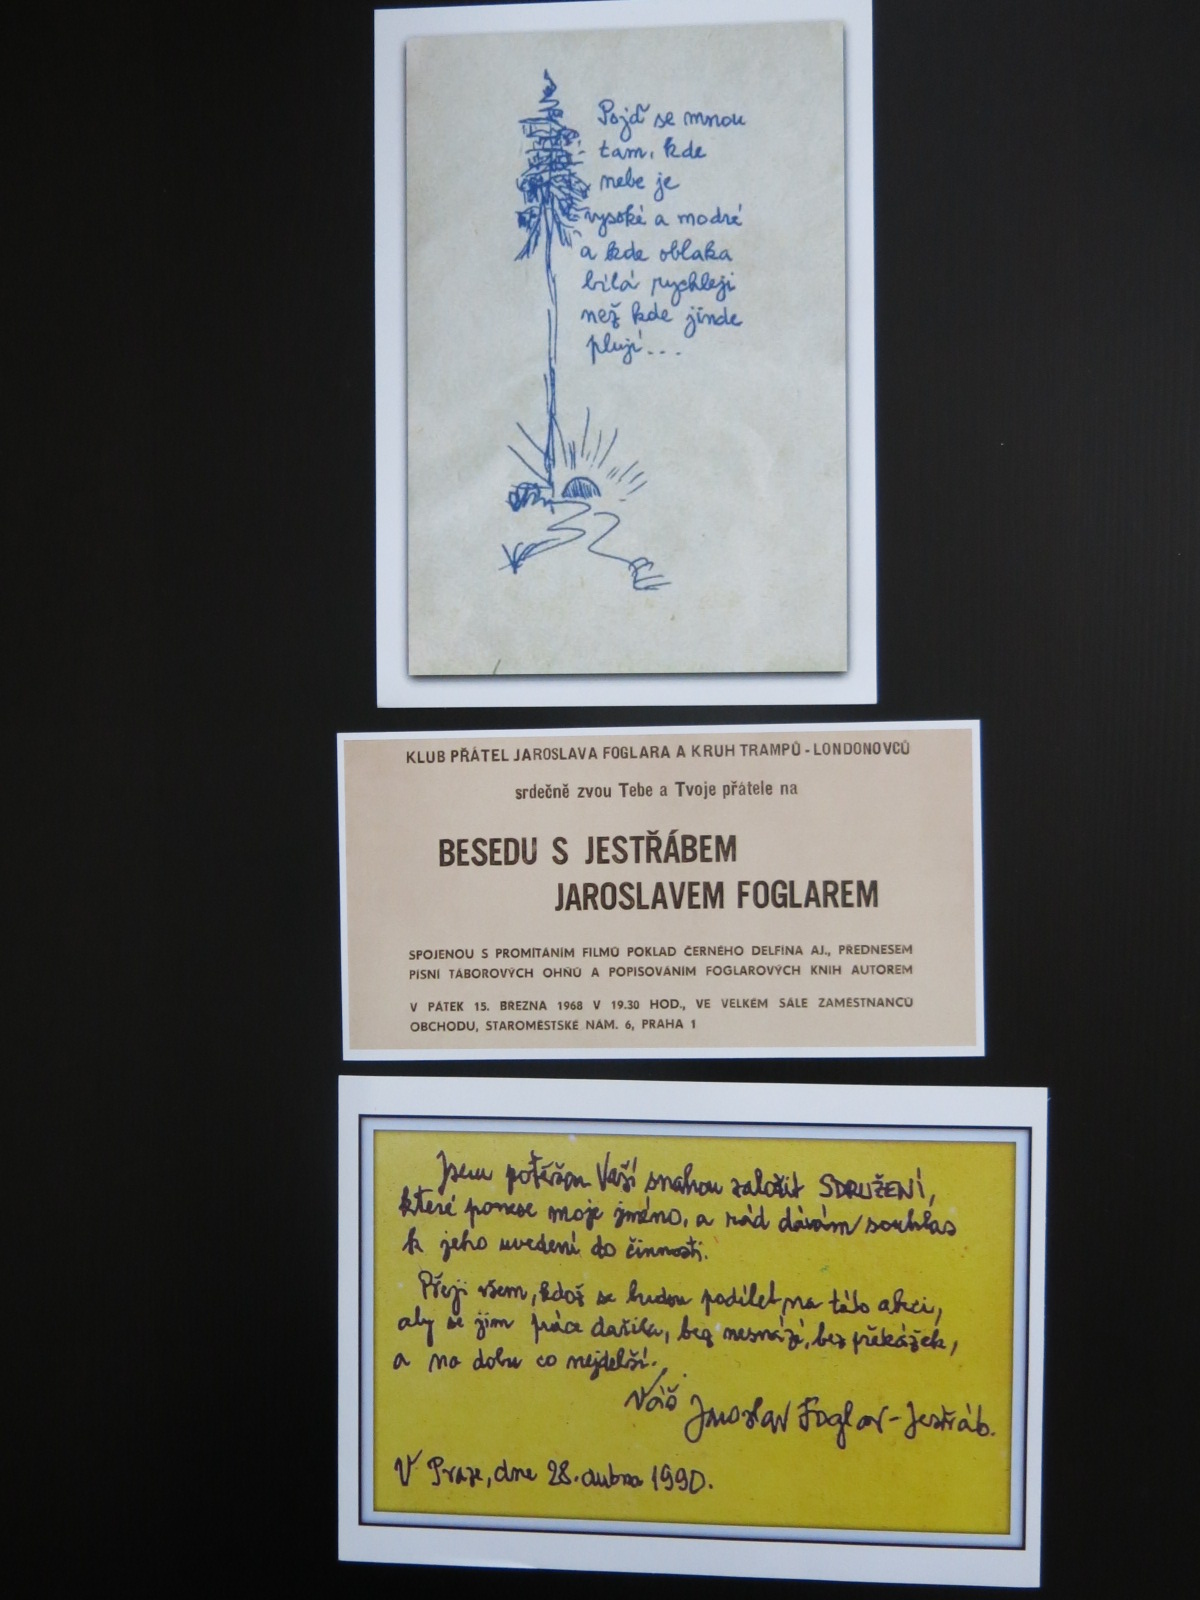 Pojď se mnou
tam, kde
nebe je
vysoké a modré
a kde oblaka
bílá rychleji
než kde jinde
plují...
KLUB PŘÁTEL JAROSLAVA FOGLARA A KRUH TRAMPŮ - LONDONOVCŮ
srdečně zvou Tebe a Tvoje přátele na
BESEDU S JESTŘÁBEM
JAROSLAVEM FOGLAREM
SPOJENOU S PROMÍTÁNÍM FILMŮ POKLAD ČERNÉHO DELFÍNA AJ., PŘEDNESEM
PÍSNÍ TÁBOROVÝCH OHŇŮ A POPISOVÁNÍM FOGLAROVÝCH KNIH AUTOREM
V PÁTEK 15. BŘEZNA 1968 V 19.30 HOD., VE VELKÉM SÁLE ZAMĚSTNANCŮ
OBCHODU, STAROMĚSTSKÉ NÁM. 6, PRAHA 1
Jsem potěšen Vaší snahou založit SDRUŽENÍ,
které ponese moje jméno, a rád dávám souhlas
k jeho uvedení do činnosti.
Přeji všem, kdož se budou podílet na této akci,
aby se jim práce dařila, bez nesnází, bez překážek,
a na dobu co nejdelší.
Váš Jaroslav Foglar-Jestřáb.
V Praze, dne 28. dubna 1990.